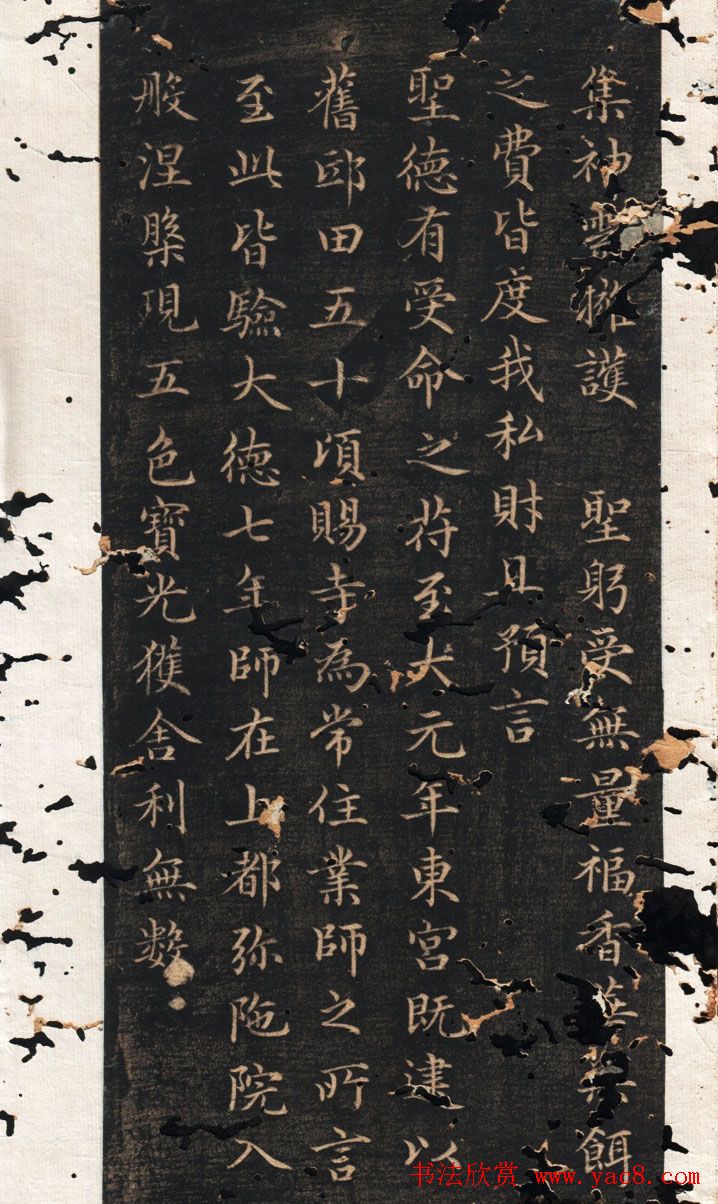 集神雲擁護　聖躬受無量福香華果餌
之費皆度我私財且預言
聖德有受命之符至大元年東宮既建以
舊邸田五十頃賜寺為常住業師之所言
至此皆驗大德七年師在上都弥陁院入
般涅槃現五色寶光獲舍利無数
书法欣赏 www.yac8.com